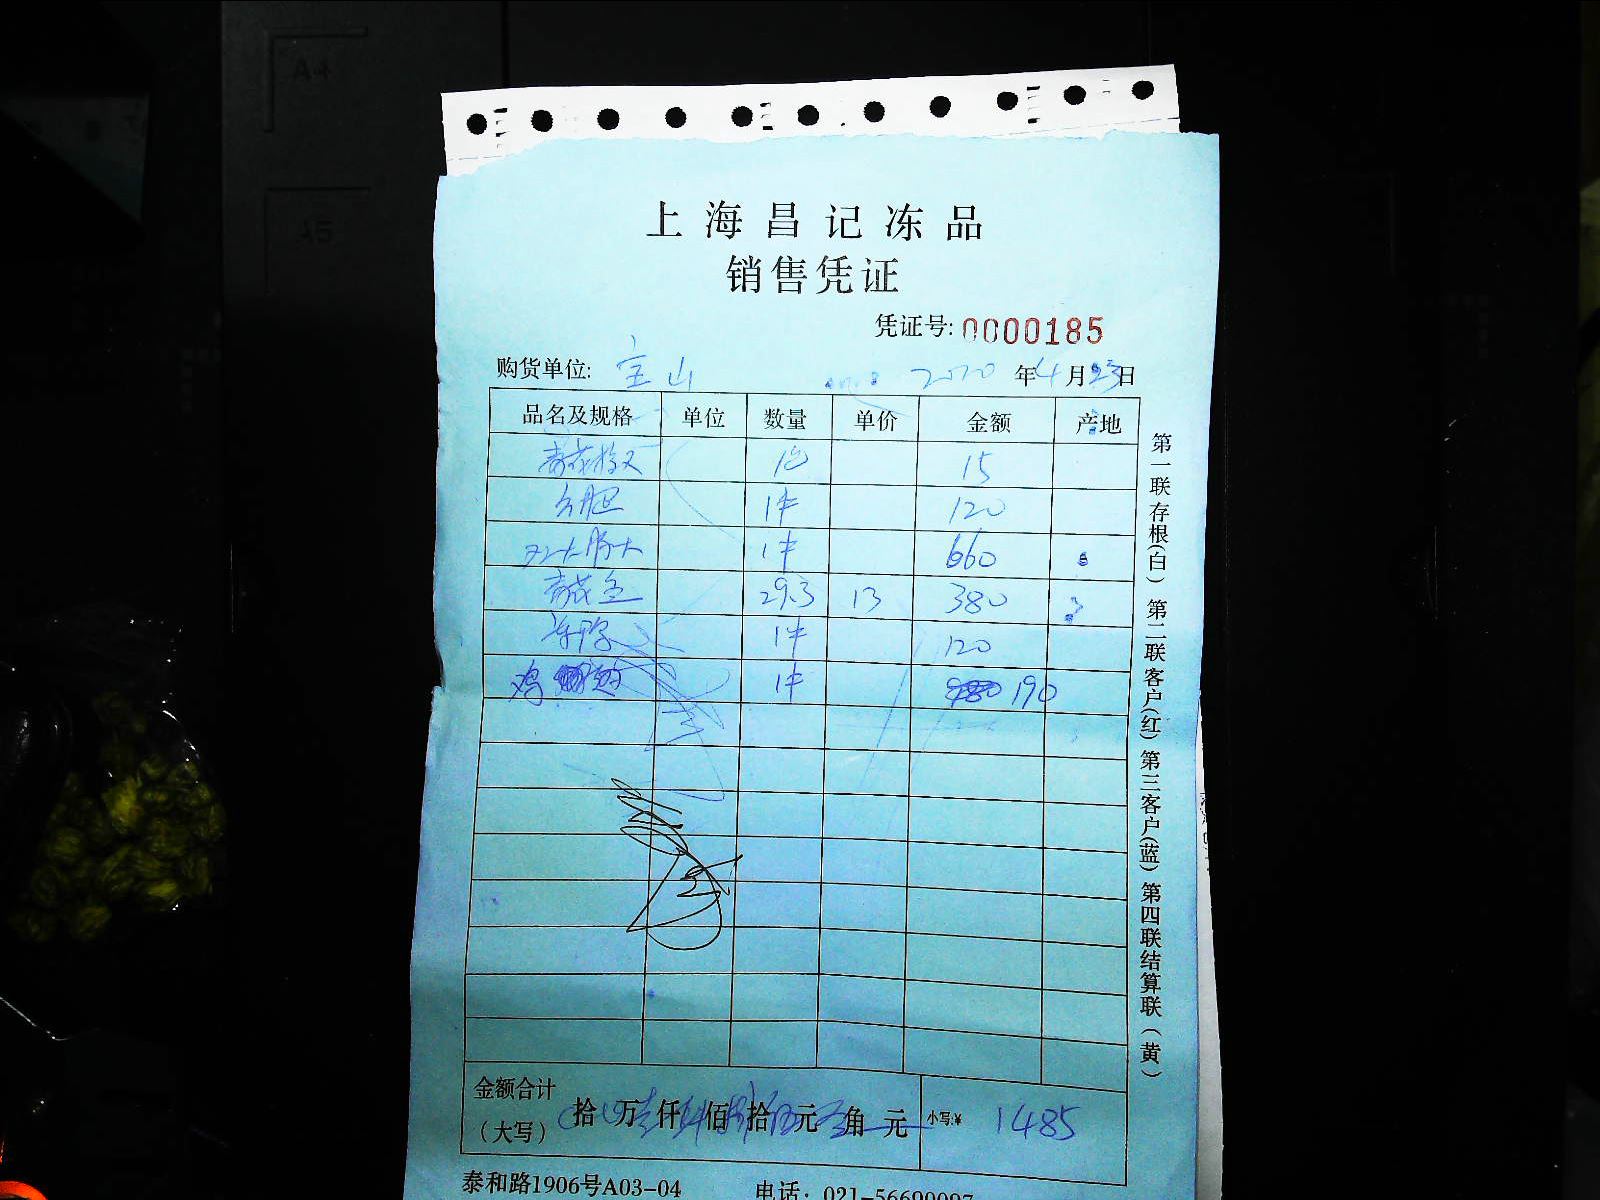 上海昌记冻品
销售凭证
凭证号: 0000185
购货单位: 宝山 2020 年 4 月 23 日
品名及规格 单位 数量 单价 金额 产地
15
1件 120
1件 660
青花鱼 29.3 13 380
1件 120
鸡 1件 190
金额合计
(大写) 拾 万 仟 佰 拾 元 角 元 小写:¥ 1485
泰和路1906号A03-04 电话: 021-56690097
第一联存根(白) 第二联客户(红) 第三客户(蓝) 第四联结算联(黄)
A4
A5